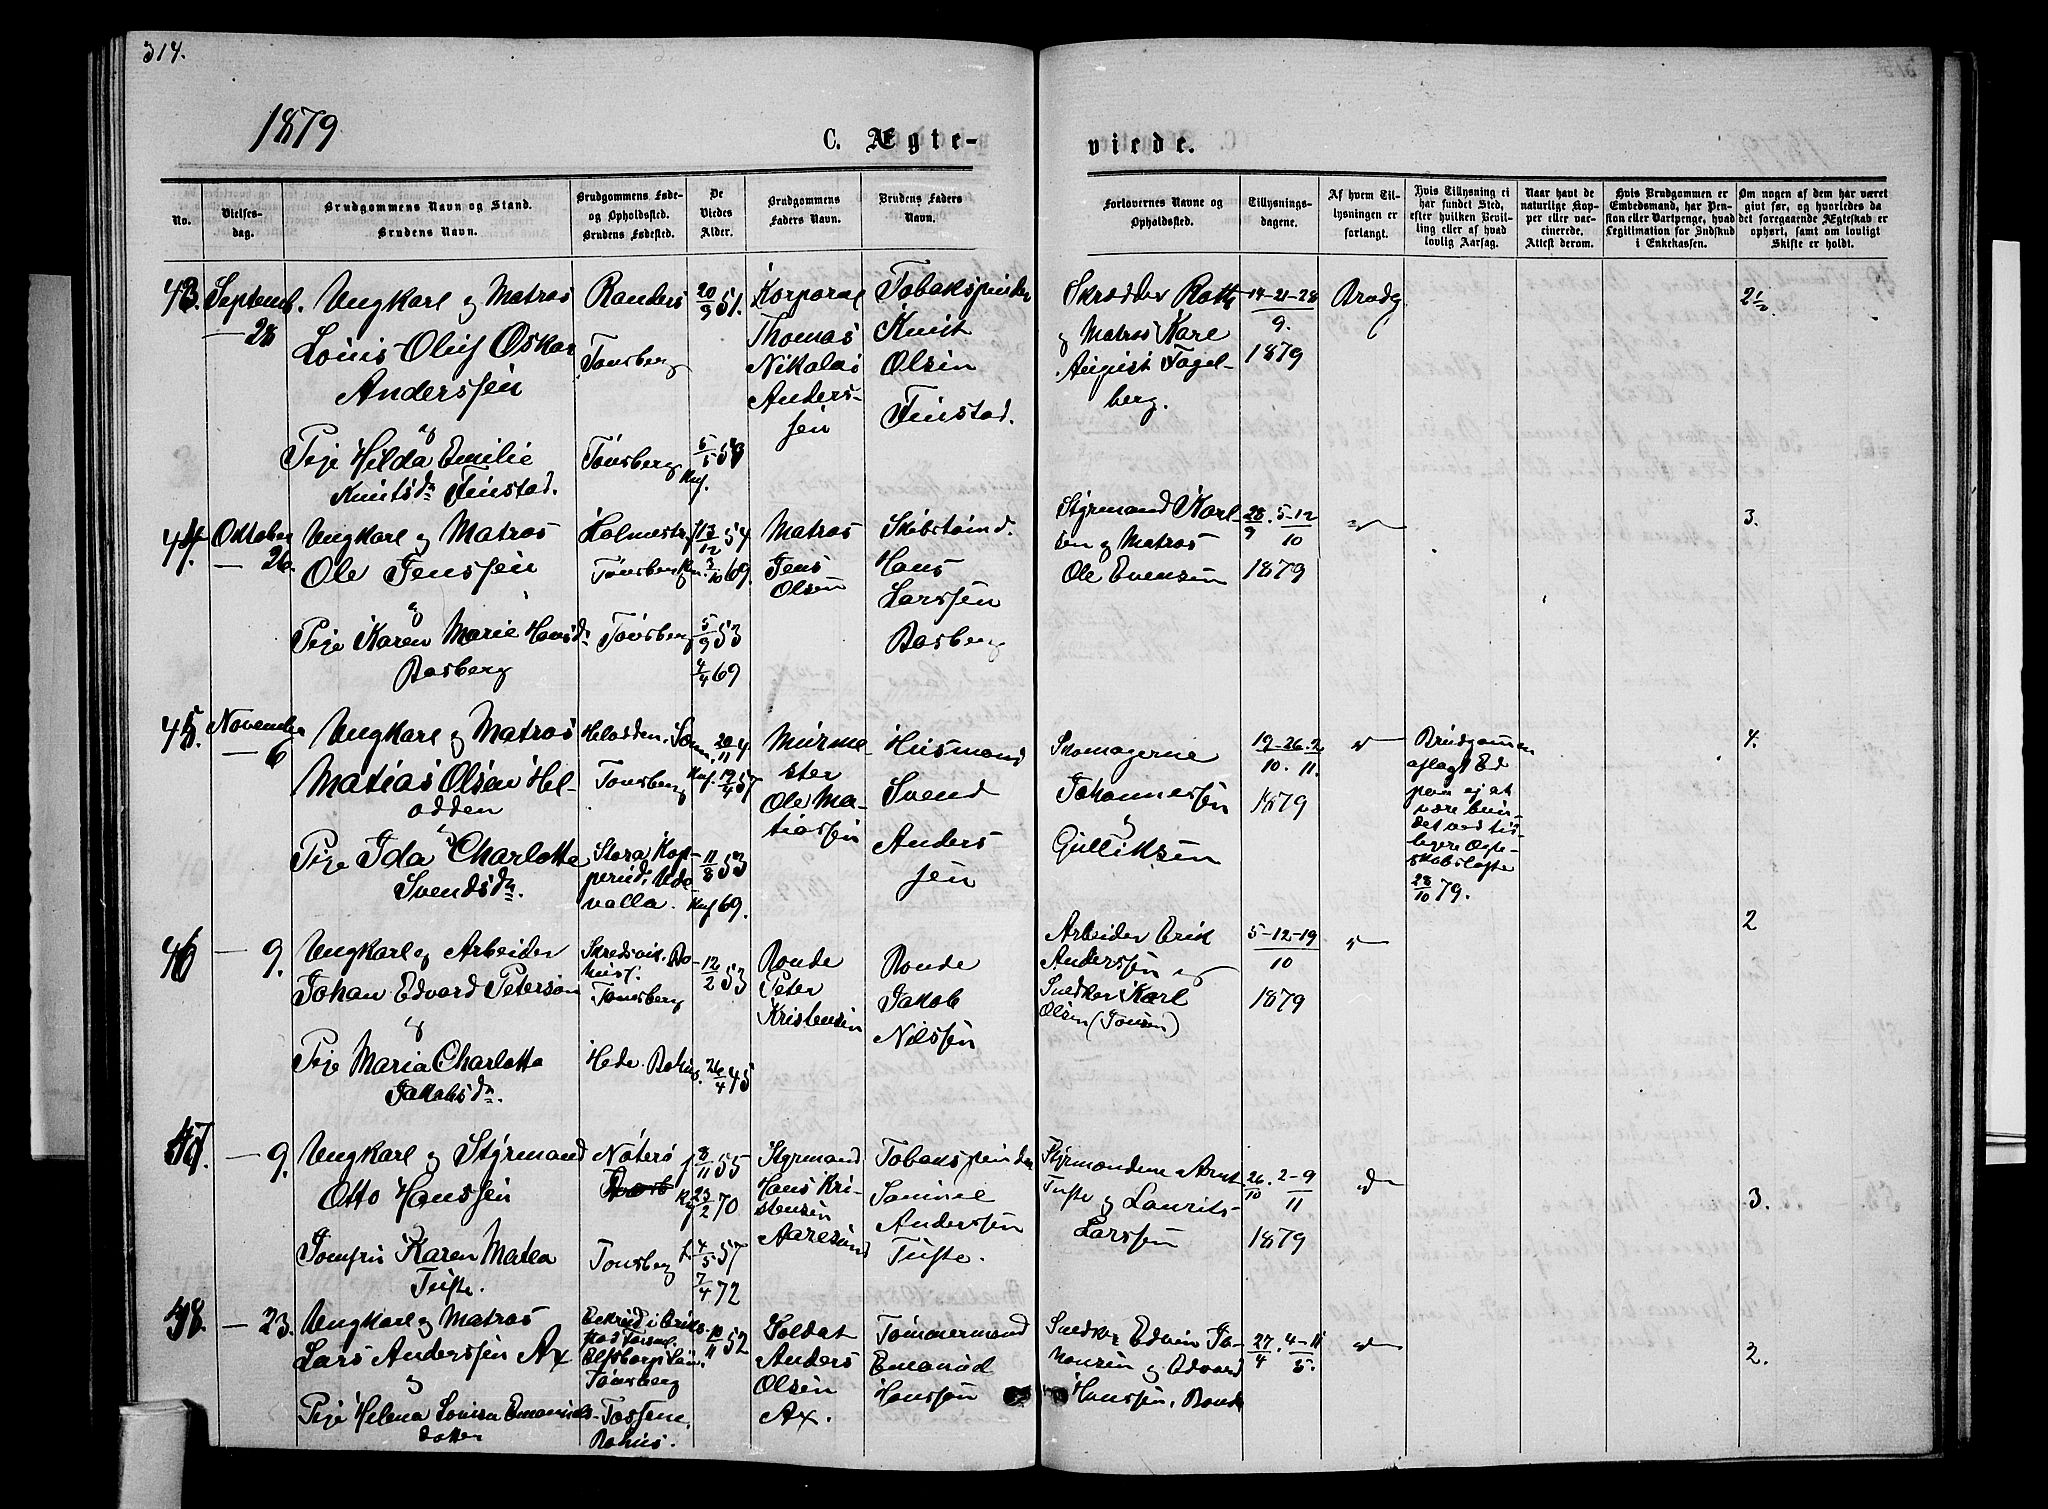 314.
1879
C. Ægte-
viede.
No.
Vielses-
dag.
Brudgommens Navn og Stand.
Brudens Navn.
Brudgommens Føde-
og Opholdssted.
Brudens Fødested.
De
Viedes
Alder.
Brudgommens
Faders Navn.
Brudens Faders
Navn.
Forlovernes Navne og
Opholdssted.
Tillysnings-
dagene.
Af hvem Til-
lysningen er
forlangt.
Hvis Tillysning ei
har fundet Sted,
efter hvilken Bevil-
ling eller af hvad
lovlig Aarsag.
Naar havt de
naturlige Kop-
per eller vac-
cinerede.
Attest derom.
Hvis Brudgommen er
Embedsmand, har Pen-
sion eller Vartpenge, hvad
Legitimation for Indskud
i Enkekassen.
Om nogen af dem har været
givt før, og hvorledes da
det foregaaende Ægteskab er
ophørt, samt om lovligt
Skifte er holdt.
43.
Septemb.
— 28
Ungkarl og Matros
Louis Oluf Oskar
Anderssen
og
Pige Hilda Emilie
Knutsdr Finstad.
Randers
Tønsberg
Tønsberg
20/9 51.
5/5 58
Korporal
Thomas
Nikolai
Anders-
sen
Tobakspinder
Knut
Olsen
Finstad.
Skrædder Roth
og Matros Karl
August Fagel-
berg.
14-21-28
9.
1879
Brudg
44.
Oktober
— 26.
Ungkarl og Matros
Ole Jenssen
og
Pige Karen Marie Hansdr
Basberg
Holmestr
Tønsberg
Tønsberg
13/12 54
3/10 69.
5/9 53
4/4 69
Matros
Jens
Olsen
Skibstømd.
Hans
Larssen
Basberg
Styrmand Karl-
sen og Matros
Ole Evensen
28/9. 5-12/10
1879
3.
45.
November
— 6
Ungkarl og Matros
Matias Olsen Hel-
odden
og
Pige Ida Charlotte
Svendsdr.
Helodden,
Tønsberg
Stora Kop-
perud, Ude-
valla.
11/8 53
69.
Murme-
ster
Ole Ma-
tiassen
Husmand
Svend
Anders
sen
Skomagerne
Johannessen
og
Gulliksen
19-26. 2
10. 11.
1879
Brudgommen
aflagt Ed
paa ej at
være bun-
det ved tid-
ligere Ægte-
skabsløfte
28/10 79.
4.
46
— 9.
Ungkarl og Arbeider
Johan Edvard Peterson
og
Pige Maria Charlotta
Jakobsdr.
Skredsvik. Bo-
hus.
Tønsberg
Hede. Bohus.
12/2 53
26/4 45
Bonde
Peter
Kristensen
Bonde
Jakob
Nilssen
Arbeider Erik
Anderssen og
Snedker Karl
Olsen (Jonsen)
5-12-19
10
1879
2
47.
— 9.
Ungkarl og Styrmand
Otto Hanssen
Jomfru Karen Matea
Tufte.
Nøterø
Tønsberg
8/11 55
23/2 70
4/5 57
7/4 72
Styrmand
Hans Kri-
stensen
Aaresund
Tobakspinder
Samuel
Anderssen
Tufte.
Styrmændene Arnt
Tufte og Laurits
Larssen
26/10. 2-9/11
1879
3.
48.
— 23.
Ungkarl og Matros
Lars Anderssen Ax
og
Pige Helena Lovisa Emanuels-
dotter
Elfsborgs Län.
Tønsberg
Tossene,
Bohus.
10/11 52
Soldat
Anders
Olsen
Ax.
Tømmermand
Emanuel
Hanssen
Snedker Edvin Jo-
hansen og Edvard
Hanssen, Bonde
27/4. 4-11/5.
2.